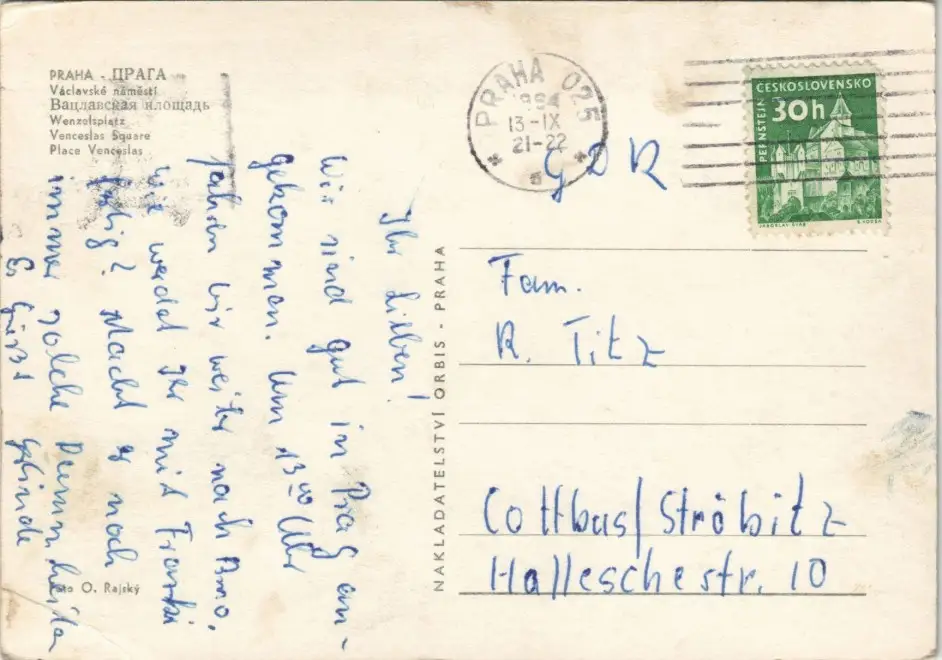 PRAHA - ПРАГА
Václavské náměstí
Вацлавская площадь
Wenzelsplatz
Venceslas Square
Place Venceslas
PRAHA 025
13-IX
21-22
a
ČESKOSLOVENSKO
30h
PERNŠTEJN
JAROSLAV
GDR
Fam.
R. Titz
Cottbus/Ströbitz
Halleschestr. 10
NAKLADATELSTVÍ ORBIS - PRAHA
Ihr Lieben!
Wir sind gut in Prag an-
gekommen. Um 13⁰⁰ Uhr
fahren wir weiter nach Brno.
Wie werdet Ihr mit
fertig? Macht er noch
immer solche Dummheiten
Es Grüßt
Foto O. Rajský